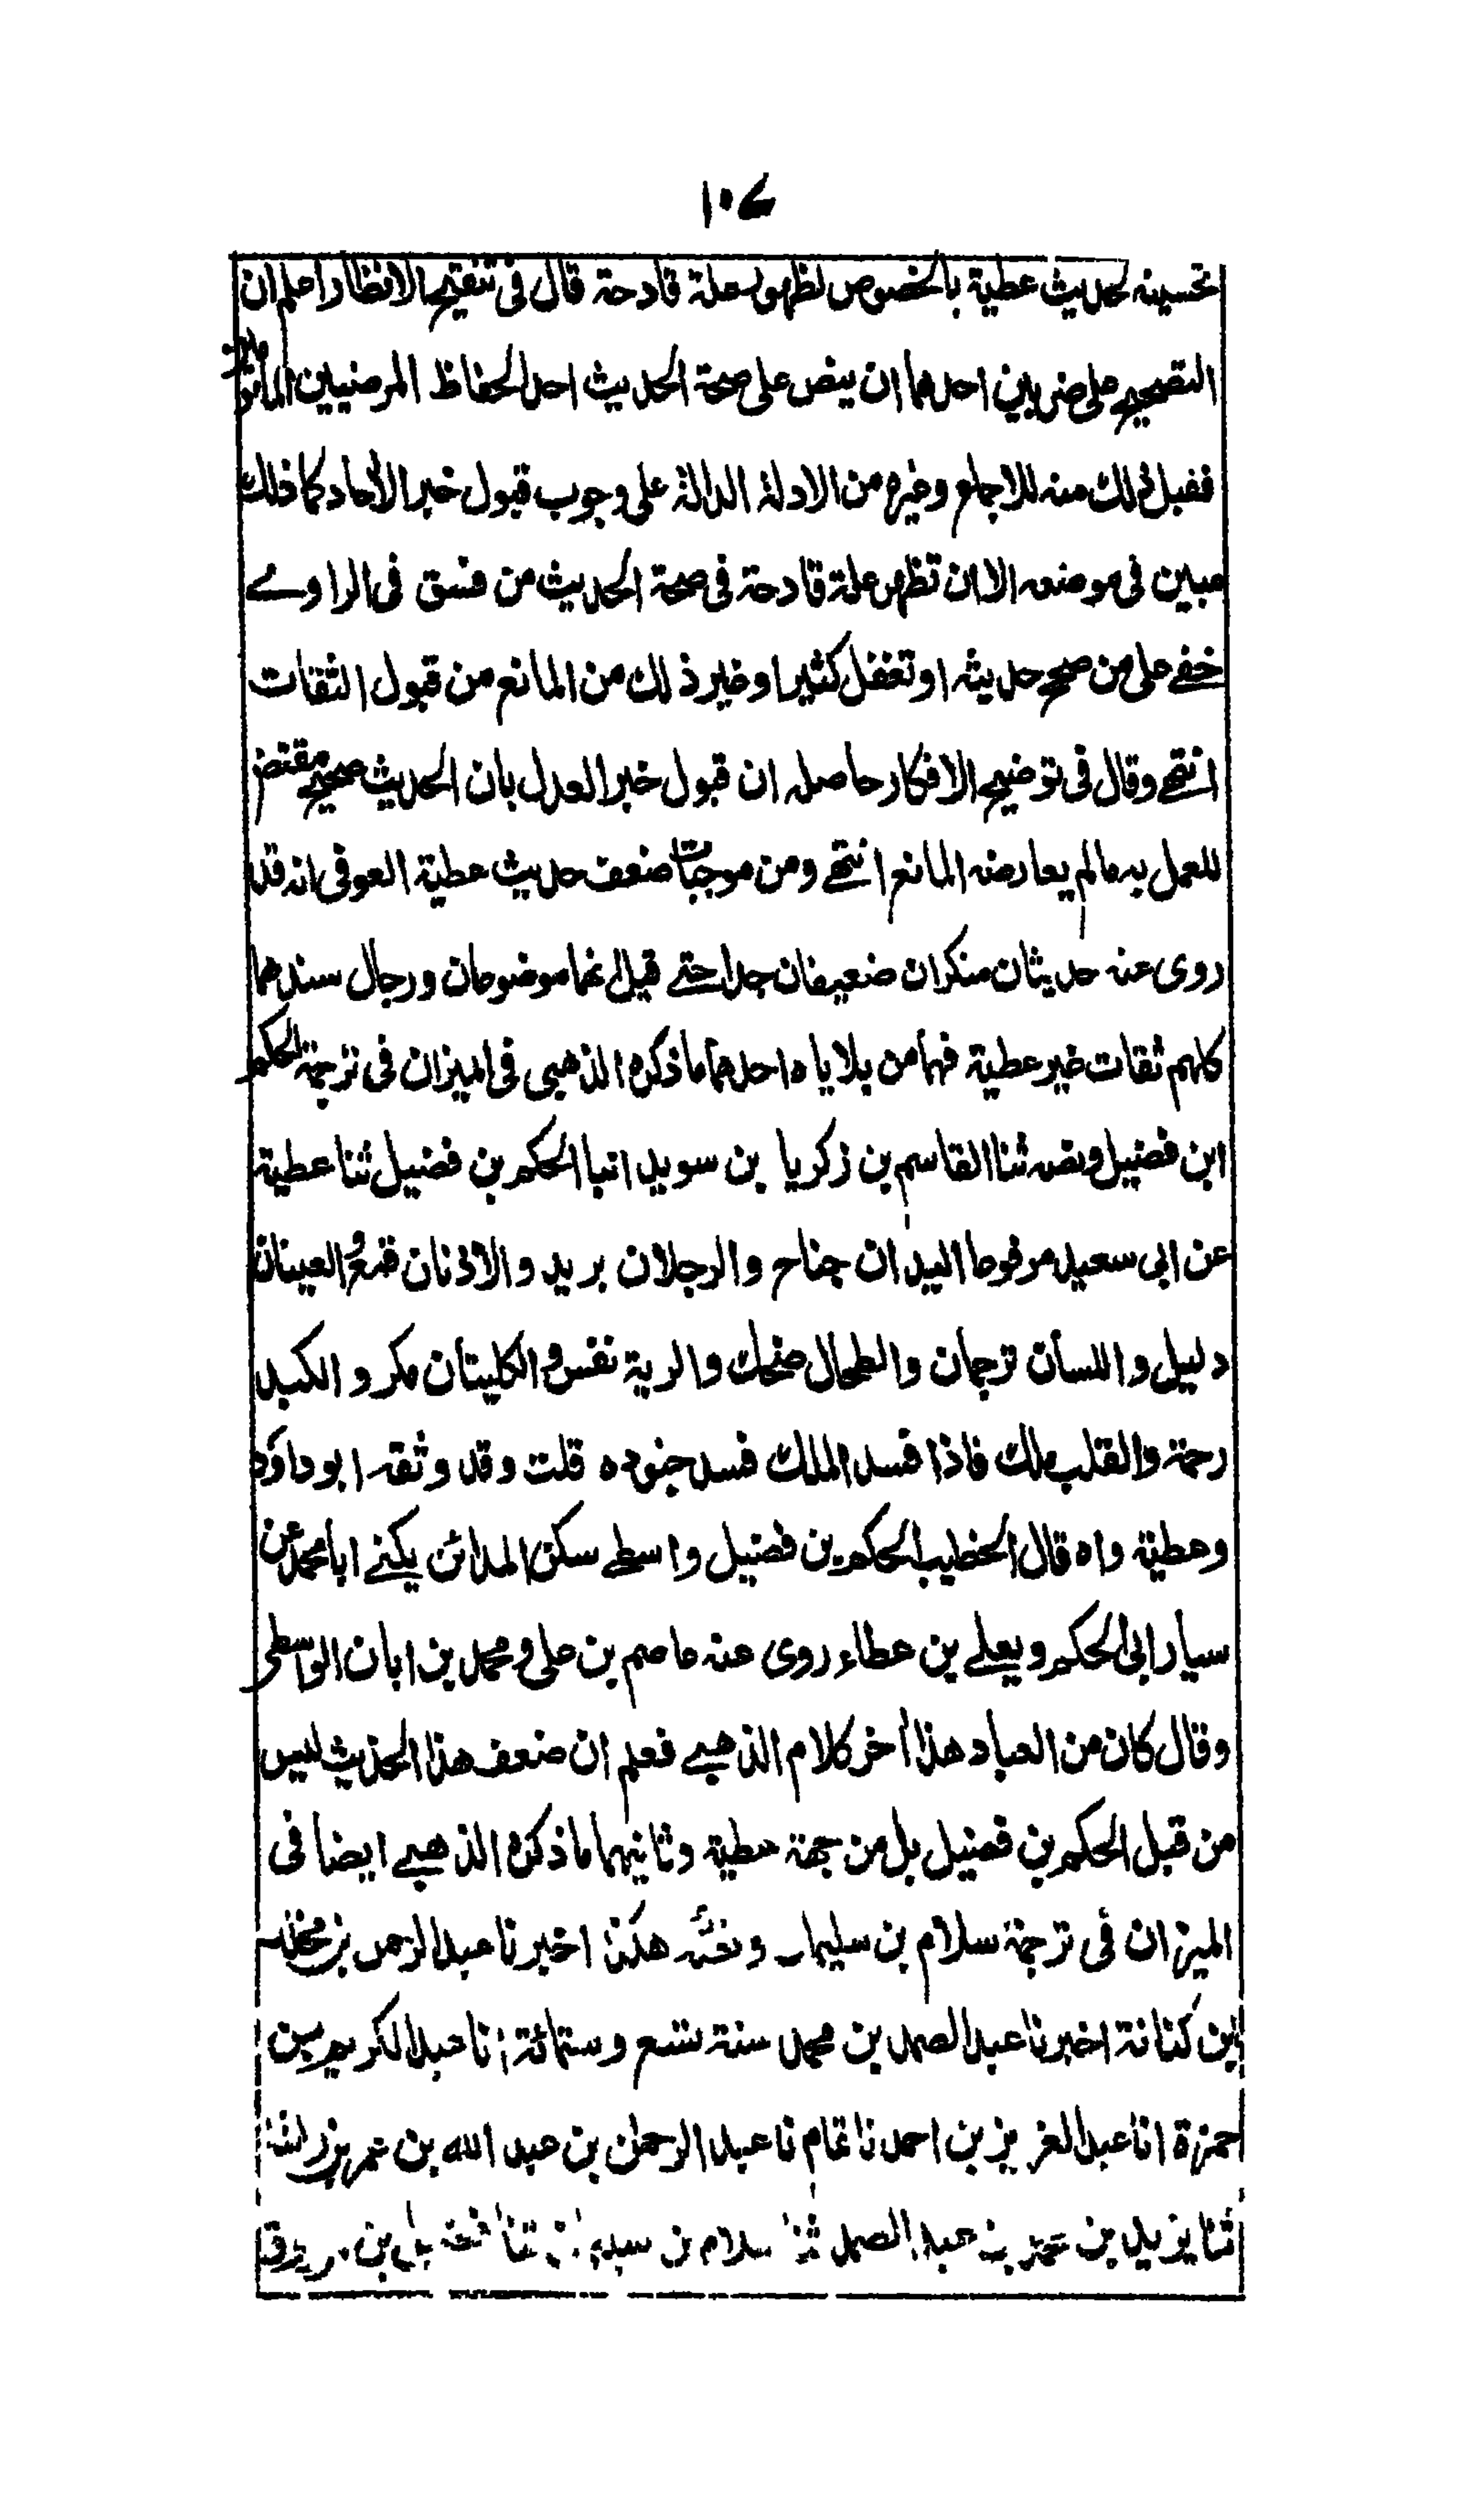 ١٠٤
تحسينه لحديث عطية بالخصوص لظهور علة قادحة قال فى تنقيح الانظار اعلم ان
التصحيح على ضربين احدهما ان ينص على صحة الحديث احد الحفاظ المرضيين المامونين
فقبل ذلك منه للاجماع وغيره من الادلة الدالة على وجوب قبول خبر الآحاد كما ذلك
مبين فى موضعه الا ان تظهر علة قادحة فى صحة الحديث من فسق فى الراوے
خفے على من صحح حديثه او تغفل كثير او غير ذلك من المانع من قبول الثقات
انتهے وقال فى توضيح الافكار حاصله ان قبول خبر العدل بان الحديث صحيح مقتض
للعمل به مالم يعارضه المانع انتهے ومن موجبات ضعف حديث عطية العوفى انه قد
روى عنه حديثان منكران ضعيفان جدا حتے قيل انهما موضوعان ورجال سندهما
كلهم ثقات غير عطية فهما من بلاياه احدهما ما ذكره الذهبى فى الميزان فى ترجمة الحكم
ابن فضيل ونصه ثنا القاسم بن زكريا بن سويد انبا الحكم بن فضيل ثنا عطية
عن ابى سعيد مرفوعا اليدان جناح والرجلان بريد والاذنان قمع والعينان
دليل واللسان ترجمان والطحال ضحك والرية نفس والكليتان مكر والكبد
رحمة والقلب ملك فاذا فسد الملك فسد جنوده قلت وقد وثقه ابو داؤد
وعطية واه قال الخطيب الحكم بن فضيل واسطے سكن المدائن يكنے ابا محمد عن
سيار ابى الحكم ويعلے بن عطاء روى عنه عاصم بن على ومحمد بن ابان الواسطى
وقال كان من العباد هذا آخر كلام الذهبے فعلم ان ضعف هذا الحديث ليس
من قبل الحكم بن فضيل بل من جهة عطية وثانيهما ما ذكره الذهبے ايضا فى
الميزان فى ترجمة سلام بن سليمان ونصه هكذا اخبرنا عبد الرحمن بن مخلد
ابن كنانة اخبرنا عبد الصمد بن محمد سنة تسع وستمائة انا عبد الكريم بن
حمزة انا عبد العزيز بن احمد نا تمام نا عبد الرحمن بن عبد الله بن عمر بن راشد
ثنا يزيد بن محمد بن عبد الصمد ثنا سلام بن سليمان ثنا فضيل بن مرزوق